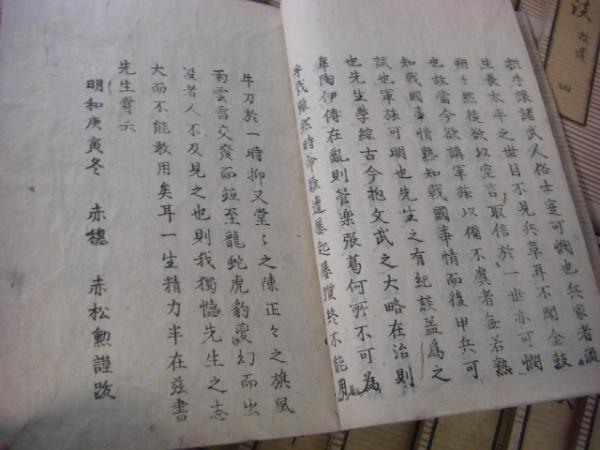 誤諸武人俗士寔可憫也兵家者流
生長太平之世目不見兵革耳不聞金鼓
然後欲以空言取信於一世亦可憫
也故當今欲講軍旅以備不虞者無若熟
知戰國事情熟知戰國事情而後甲兵可
試也軍旅可明也先生之有紀談盖爲之
也先生學綜古今抱文武之大略在治則
皐陶伊傅在亂則管樂張葛何所不可為
乎哉雖然時命難遭終不能用
牛刀於一時抑又堂々之陳正々之旗風
雨雲雷交發而並至龍蛇虎豹變幻而出
没者人不及見之也則我獨憾先生之志
大而不能敢用矣耳一生精力半在茲書
先生嘗云
明和庚寅冬 赤穗 赤松勲謹跋
四